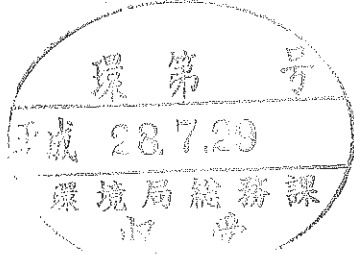 環第 号
平成 28.7.29
環境局総務課
収受